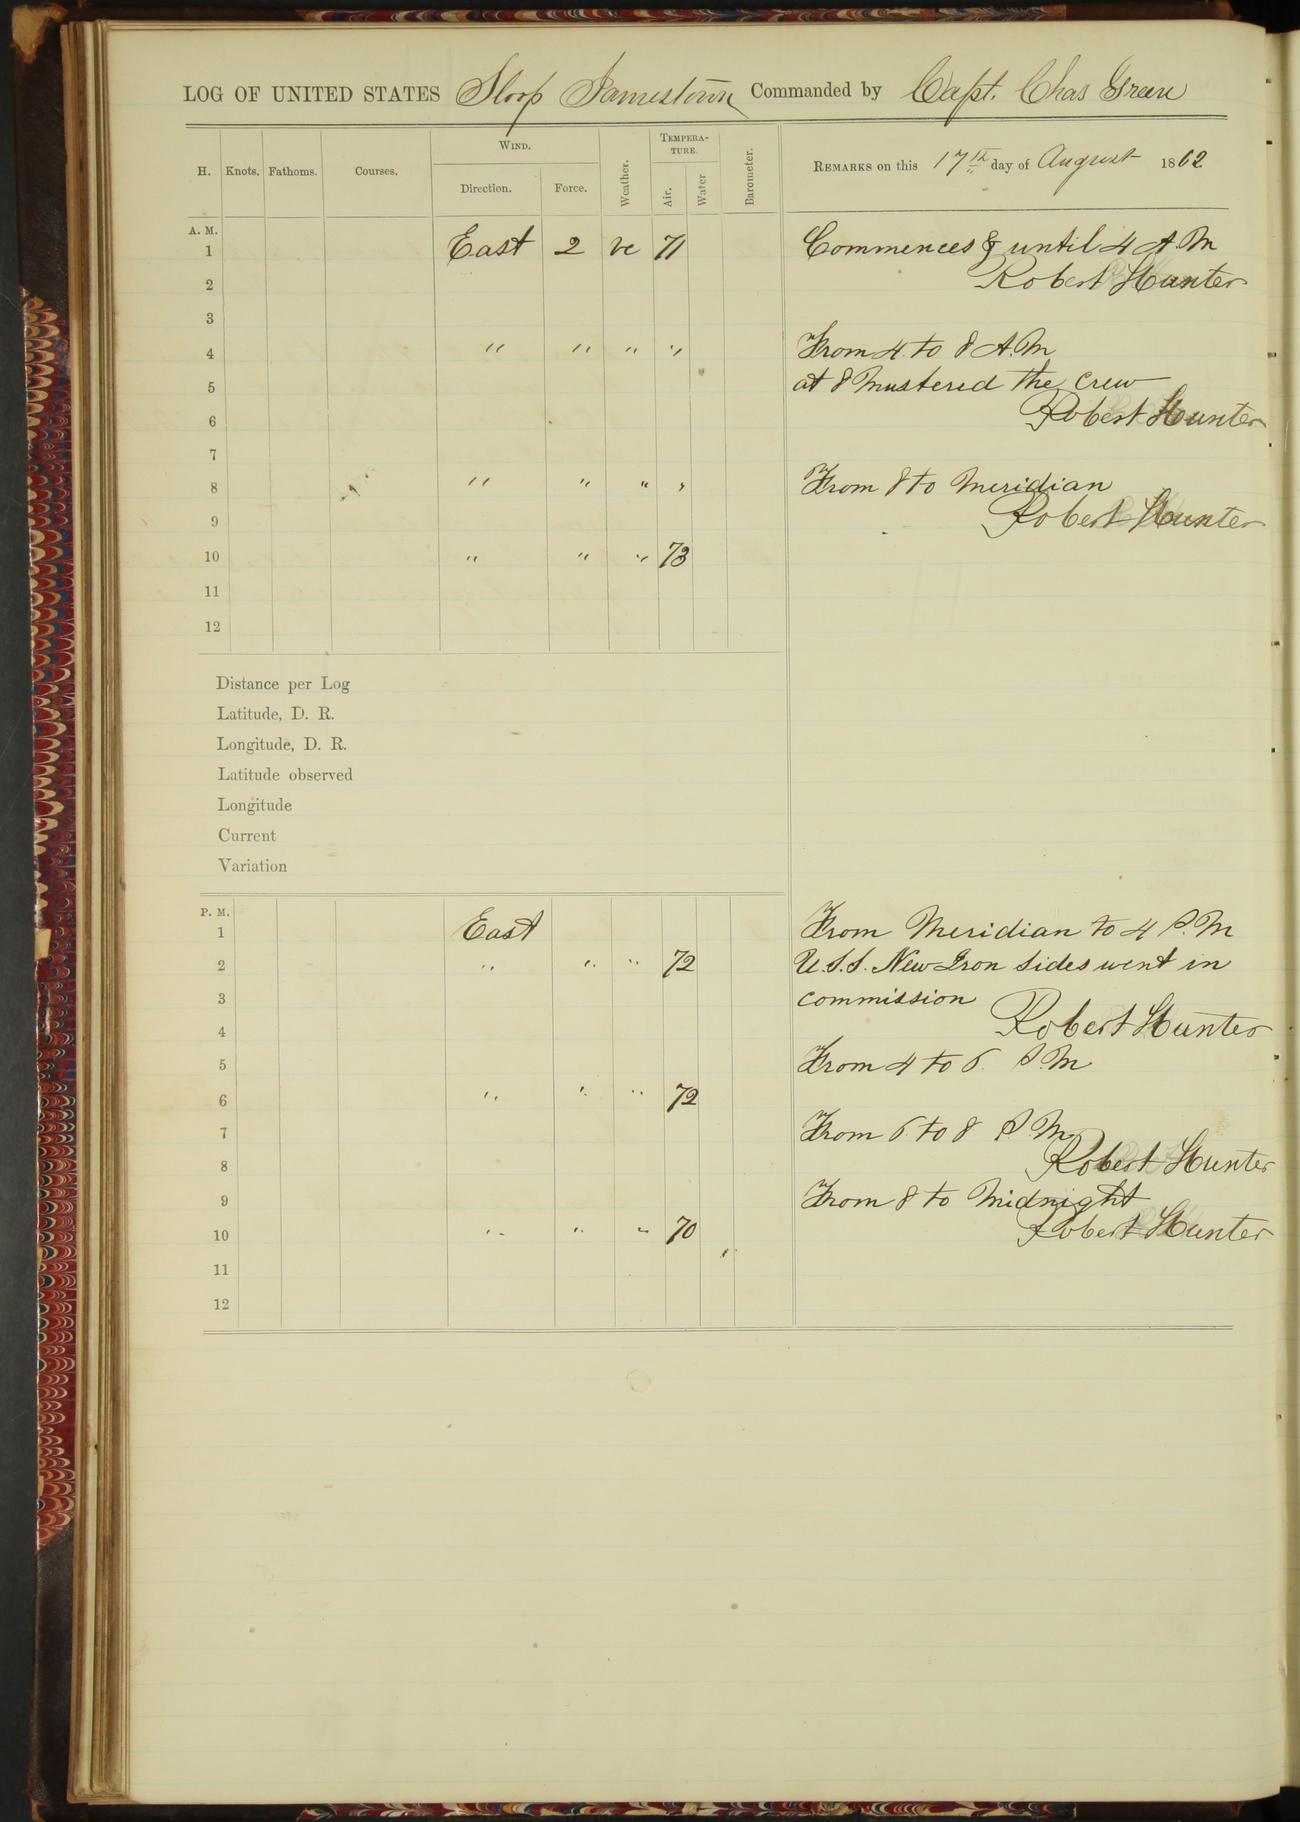 LOG OF UNITED STATES Sloop Jamestown Commanded by Capt. Chas Green
H. Knots. Fathoms. Courses. WIND. Direction. Force. Weather. TEMPERA-TURE. Air. Water Barometer. REMARKS on this 17th day of August 1862
A. M.
1 East 2 vc 71 Commences & until 4 A.M
2 Robert Hunter
3
4 " " " " From 4 to 8 A.M
5 at 8 mustered the crew
6 Robert Hunter
7
8 " " " " From 8 to Meridian
9 Robert Hunter
10 " " " 73
11
12
Distance per Log
Latitude, D. R.
Longitude, D. R.
Latitude observed
Longitude
Current
Variation
P. M.
1 East From Meridian to 4 P.M
2 " " " 72 U.S.S. New Iron sides went in
3 commission
4 Robert Hunter
5 From 4 to 6 P.M
6 " " " 72
7 From 6 to 8 P.M
8 Robert Hunter
9 From 8 to Midnight
10 " " " 70 Robert Hunter
11
12